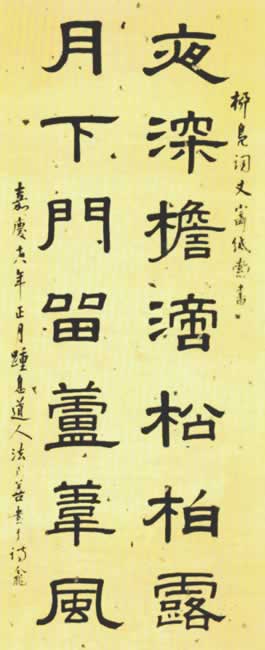 柳詞丈索書
夜深檐滴松柏露
月下門留蘆葦風
嘉慶年正月踵息道人法式善書于詩龕